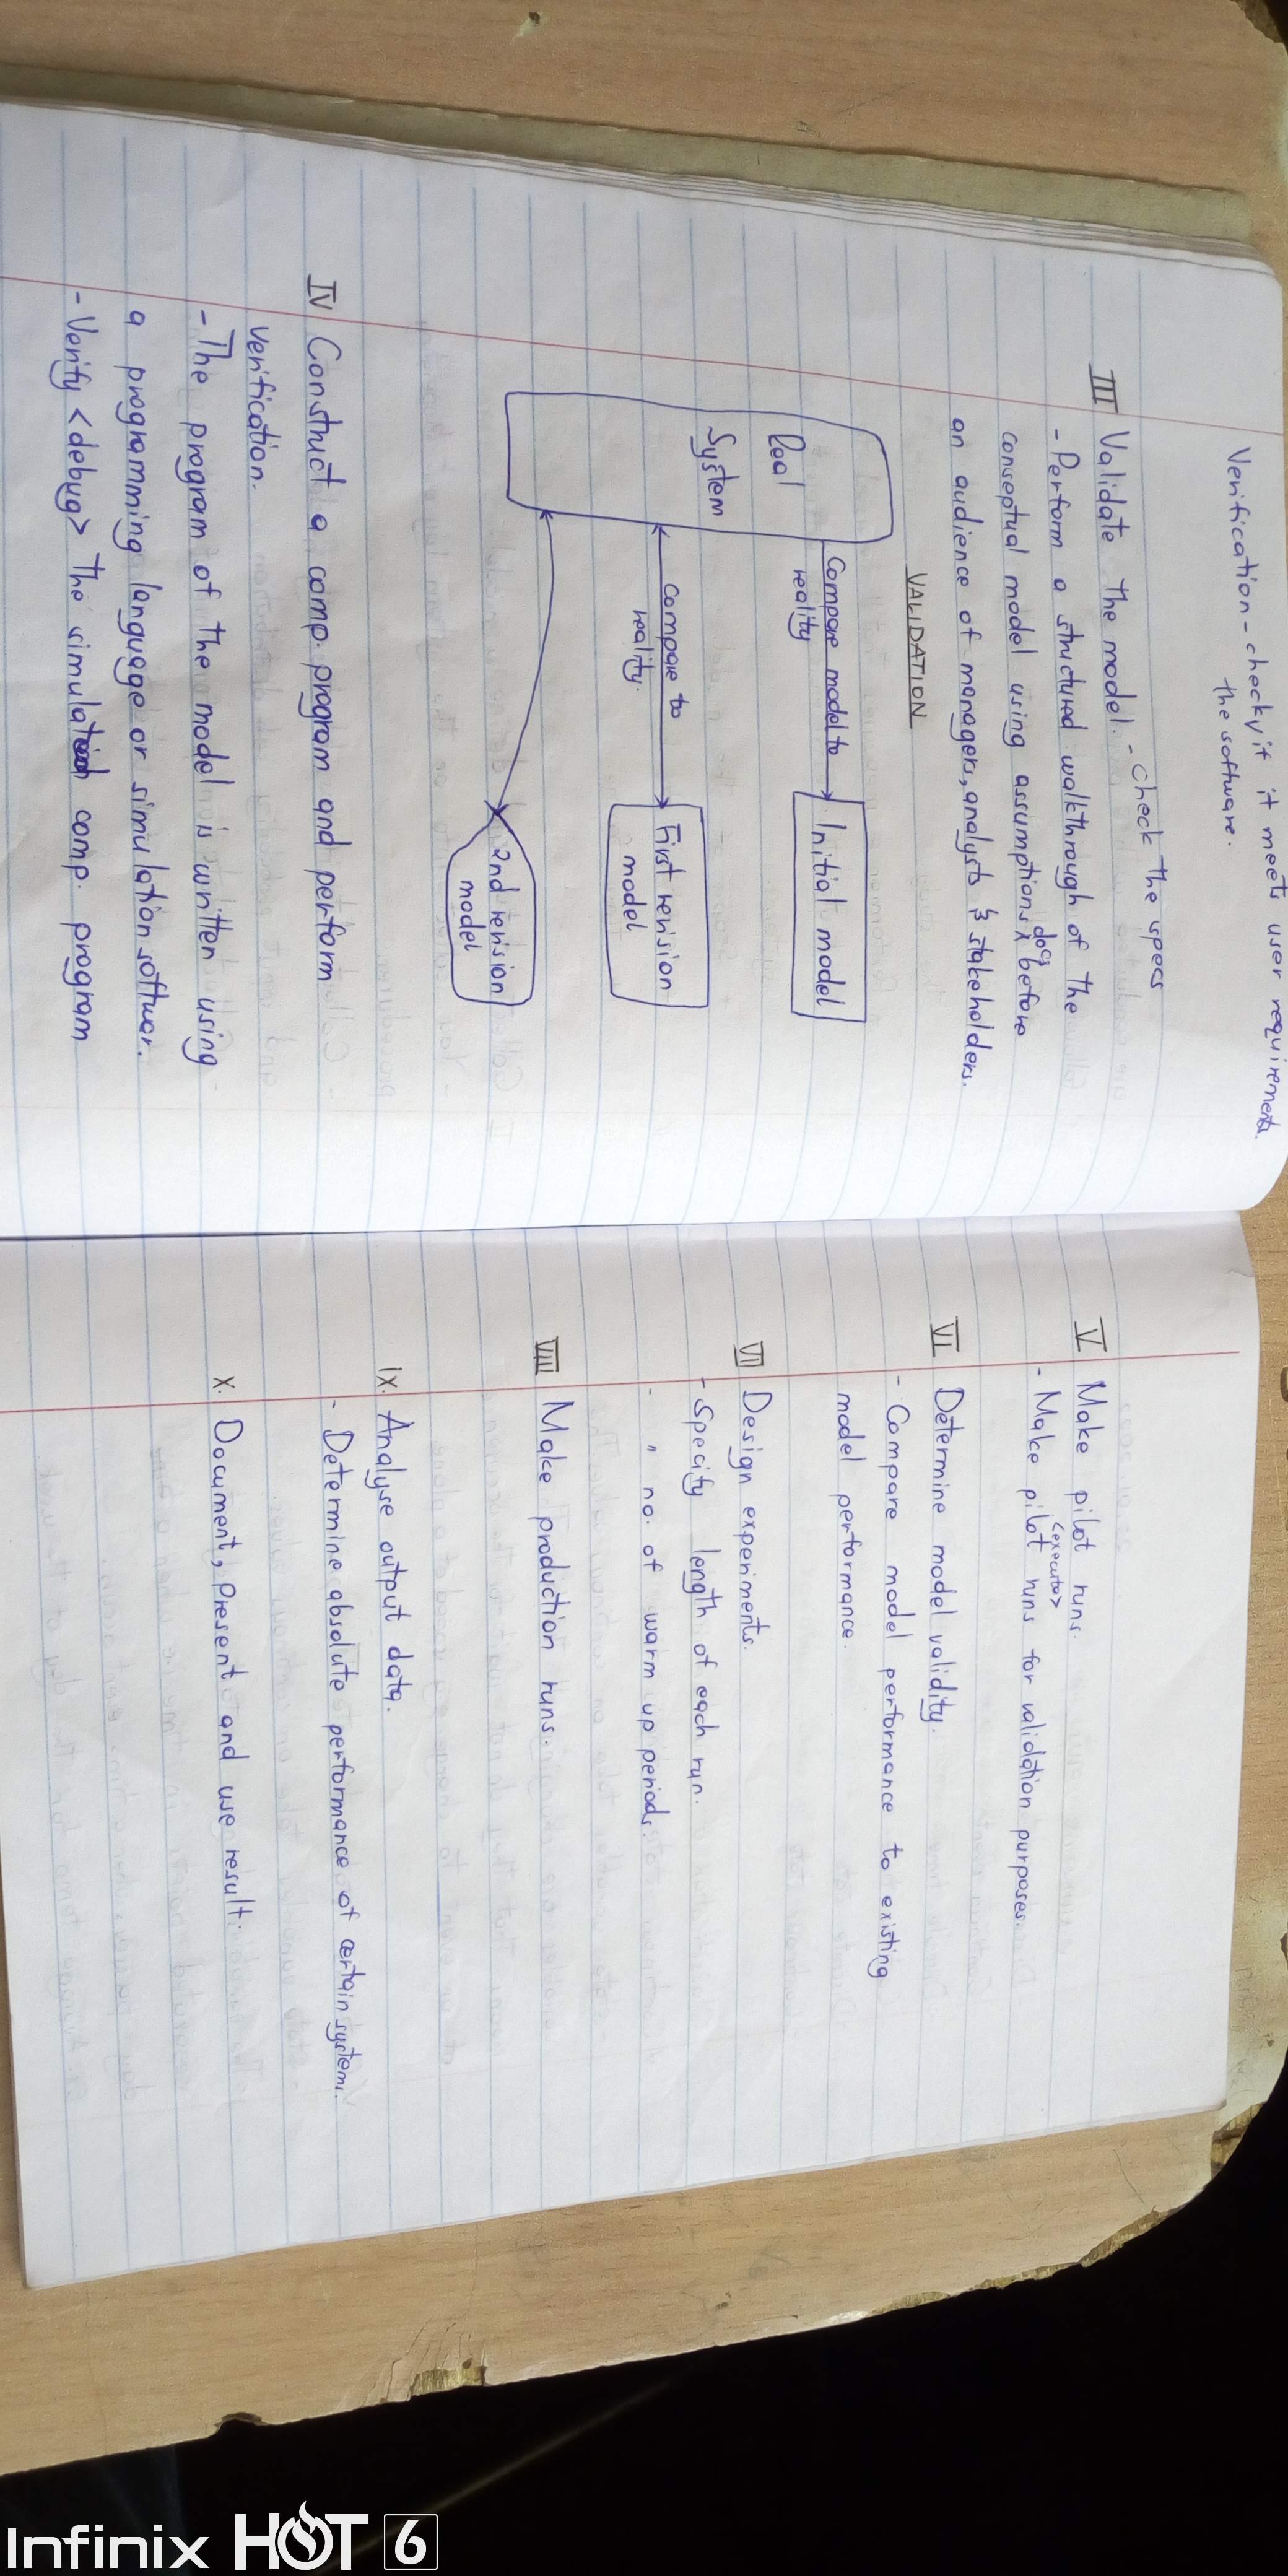 Verification - check if it meets user requirements
the software.
III Validate the model. - check the specs
- Perform a structured walkthrough of the
conseptual model using assumptions docs before
an audience of managers, analysts & stakeholders.
VALIDATION
Real
System
Compare model to
reality
Initial model
Compare to
reality.
First revision
model
2nd revision
model
IV Construct a comp. program and perform
verification.
- The program of the model is written using
a programming language or simulation softwar.
- Verify <debug> The simulation comp. program
V Make pilot runs.
<execute>
- Make pilot runs for validation purposes.
VI Determine model validity.
- Compare model performance to existing
model performance.
VI Design experiments.
- Specify length of each run.
- " no. of warm up periods.
VIII Make production runs.
ix. Analyse output data.
- Determine absolute performance of certain systems.
x. Document, present and use result.
Infinix HOT 6